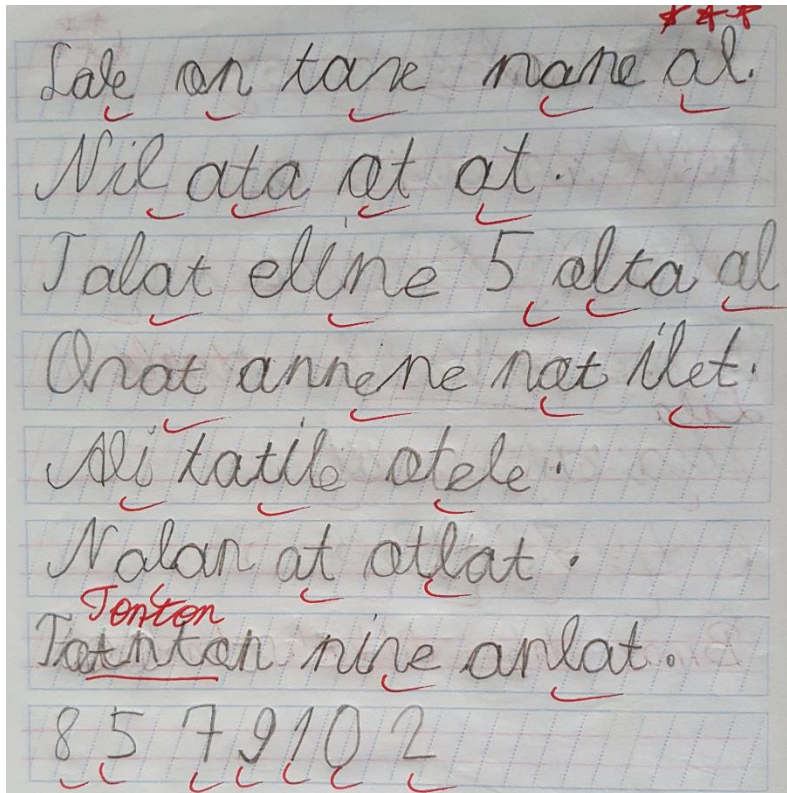 Lale on tane nane al.
Nil ata at at.
Talat eline 5 olta al
Onat annene not ilet.
Ali tatile otele.
Nalan at otlat.
Tonton
nine anlat.
8 5 7 9 1 0 2